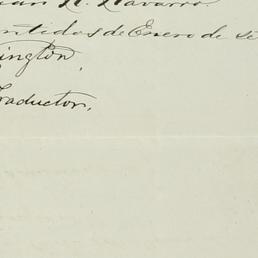 N. Navarro.
ntidos de Enero de se
ington
raductor,